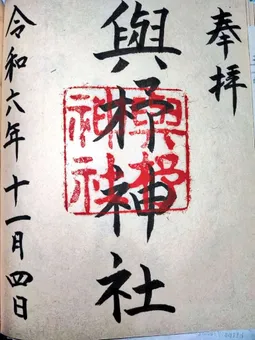 奉拝
與杼神社
與杼
神社
令和六年十一月四日